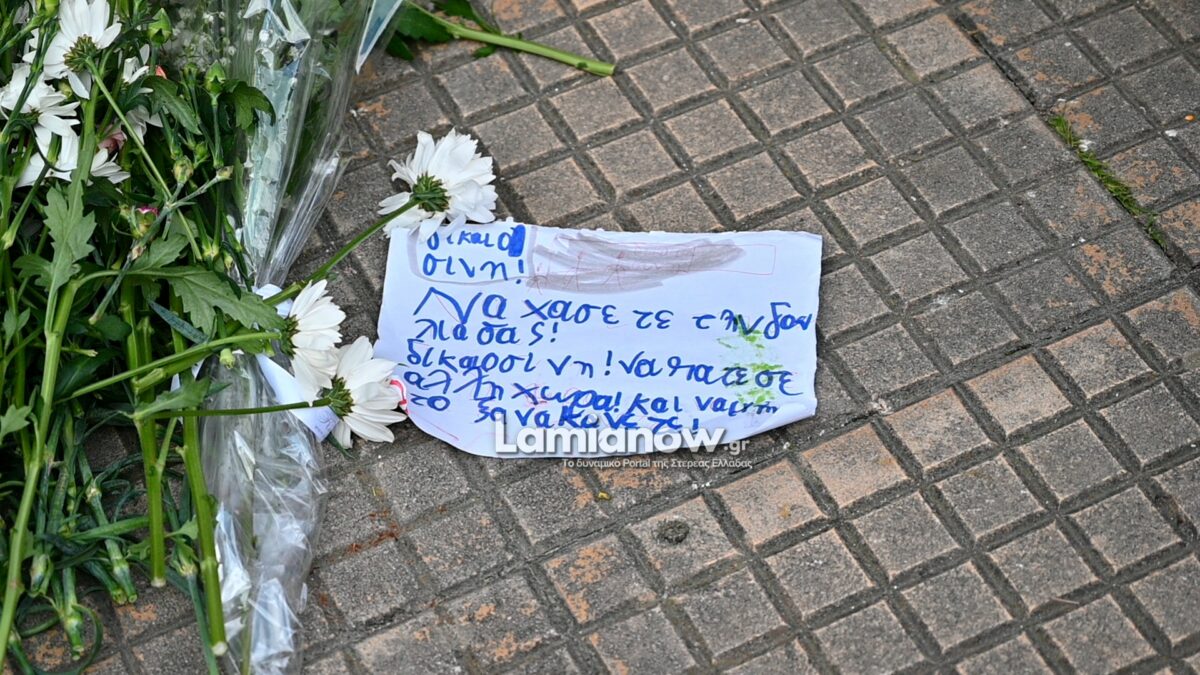 δικαιο
σινη!
Να χασε τε την δου
λια σας!
δικαιοσινη! να πατε σε
αλλη χωρα! και να μην
το ξανακανετε!
Lamianow.gr
Το δυναμικό Portal της Στερεάς Ελλάδας